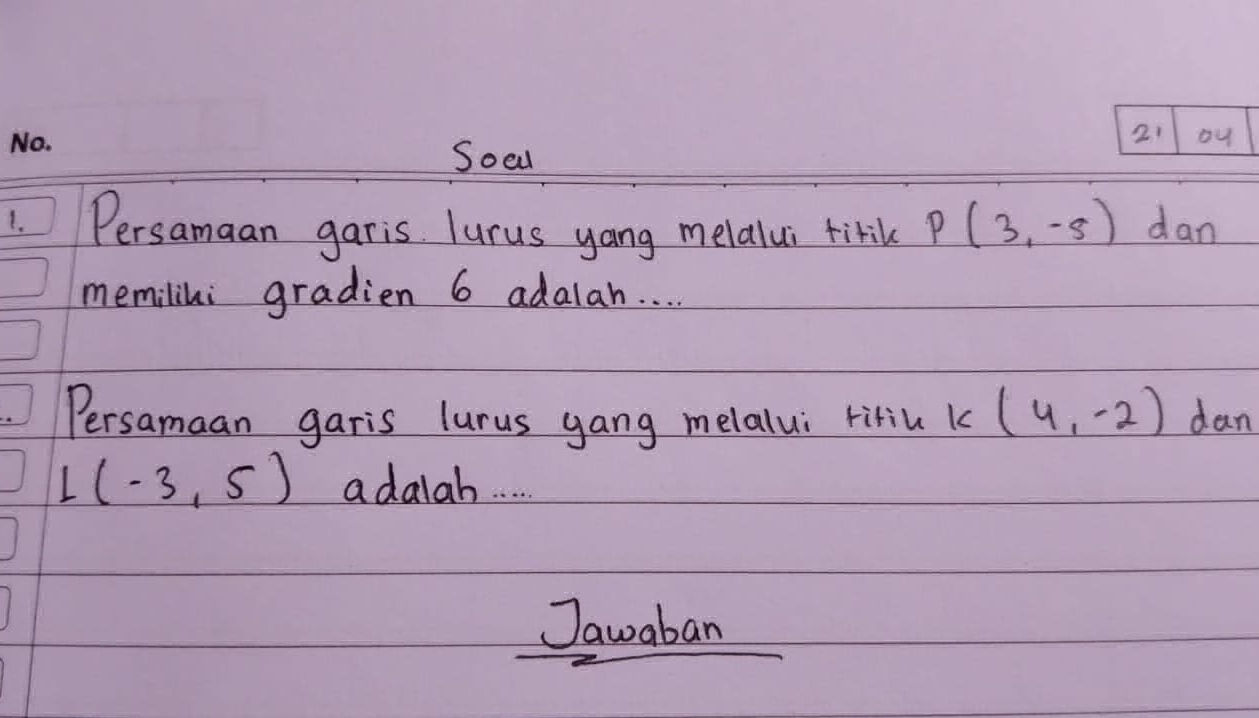 No.
Soal
21 04
1. Persamaan garis lurus yang melalui titik P (3, -5) dan
memiliki gradien 6 adalah....
Persamaan garis lurus yang melalui titik K (4, -2) dan
L (-3, 5) adalah.....
Jawaban